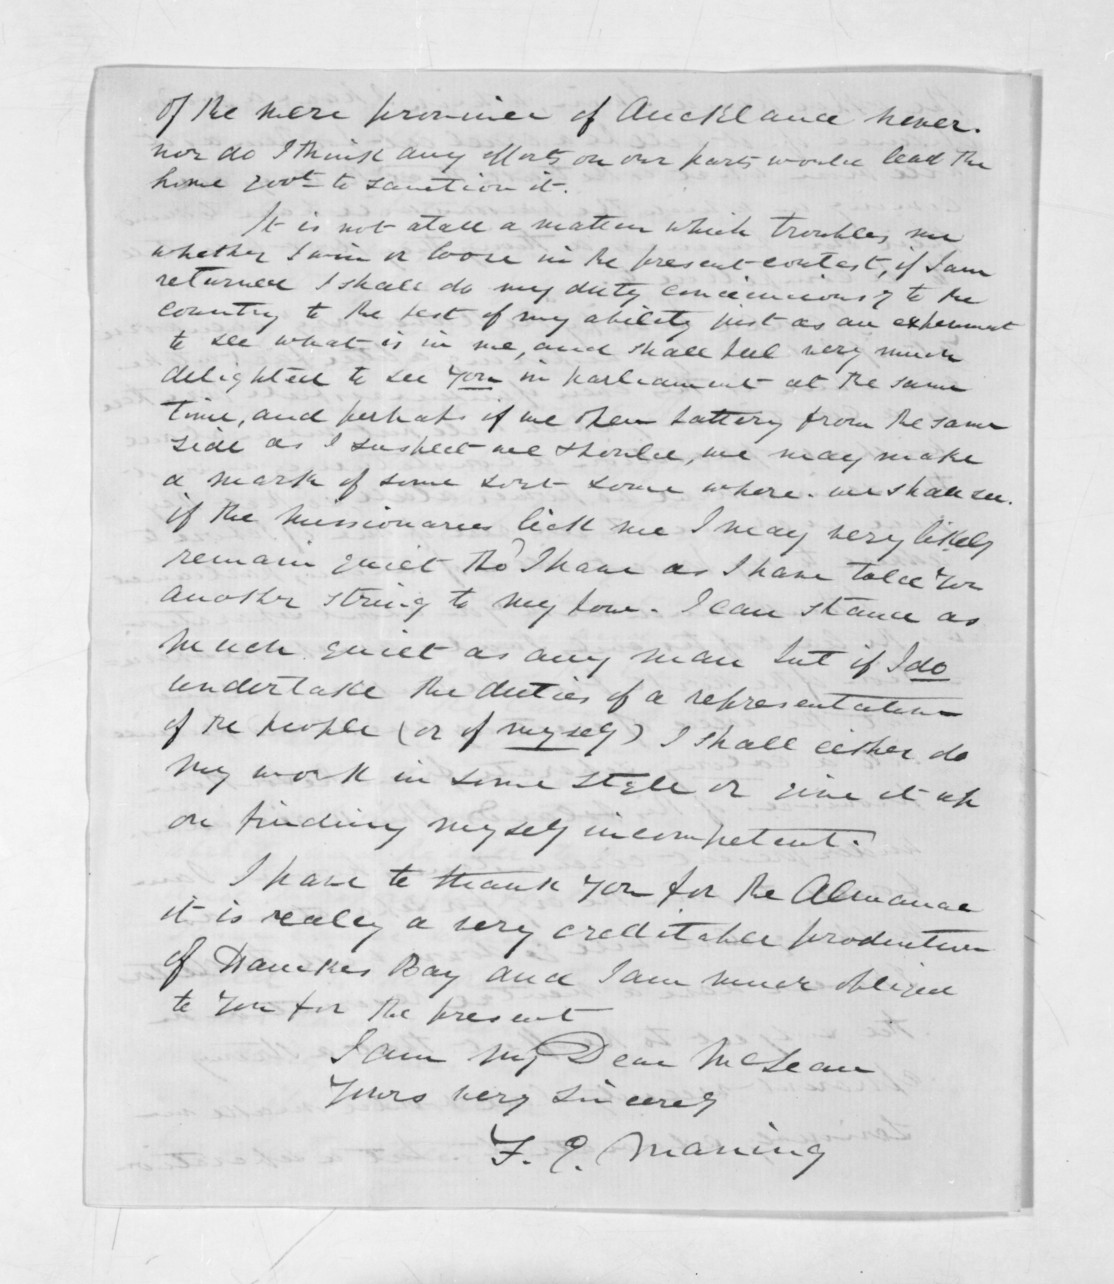 of the mere province of Auckland never.
nor do I think any efforts on our parts would lead the
home govt to sanction it.
It is not atall a matter which troubles me
whether I win or loose in the present contest, if I am
returned I shall do my duty conciencously to the
country to the best of my ability just as an experiment
to see what is in me, and shall feel very much
delighted to see you in parliament at the same
time, and perhaps if we open battery from the same
side as I suspect we should, we may make
a mark of some sort some where. we shall see.
if the missionaries lick me I may very likely
remain quiet tho' I have as I have told you
another string to my bow. I can stand as
much quiet as any man but if I do
undertake the duties of a representation
of the people (or of myself) I shall either do
my work in some style or give it up
on finding myself incompetent.
I have to thank you for the Almanac
it is really a very creditable production
of Hawkes Bay and I am much obliged
to you for the present
I am My Dear McLean
Yours very sincerely
F. E. Maning